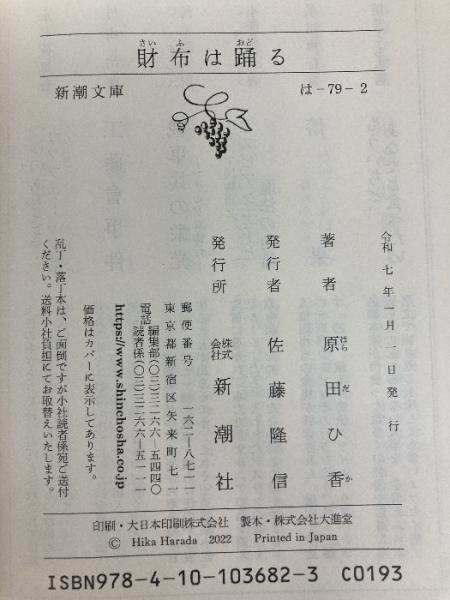 さい ふ おど
財布は踊る
新潮文庫
は-79-2
令和七年一月一日発行
著者 原田ひ香
はら だ か
発行者 佐藤隆信
発行所 株式会社 新潮社
郵便番号 一六二―八七一一
東京都新宿区矢来町七一
電話 編集部(〇三)三二六六―五四四〇
読者係(〇三)三二六六―五一一一
https://www.shinchosha.co.jp
価格はカバーに表示してあります。
乱丁・落丁本は、ご面倒ですが小社読者係宛ご送付
ください。送料小社負担にてお取替えいたします。
印刷・大日本印刷株式会社 製本・株式会社大進堂
© Hika Harada 2022 Printed in Japan
ISBN978-4-10-103682-3 C0193